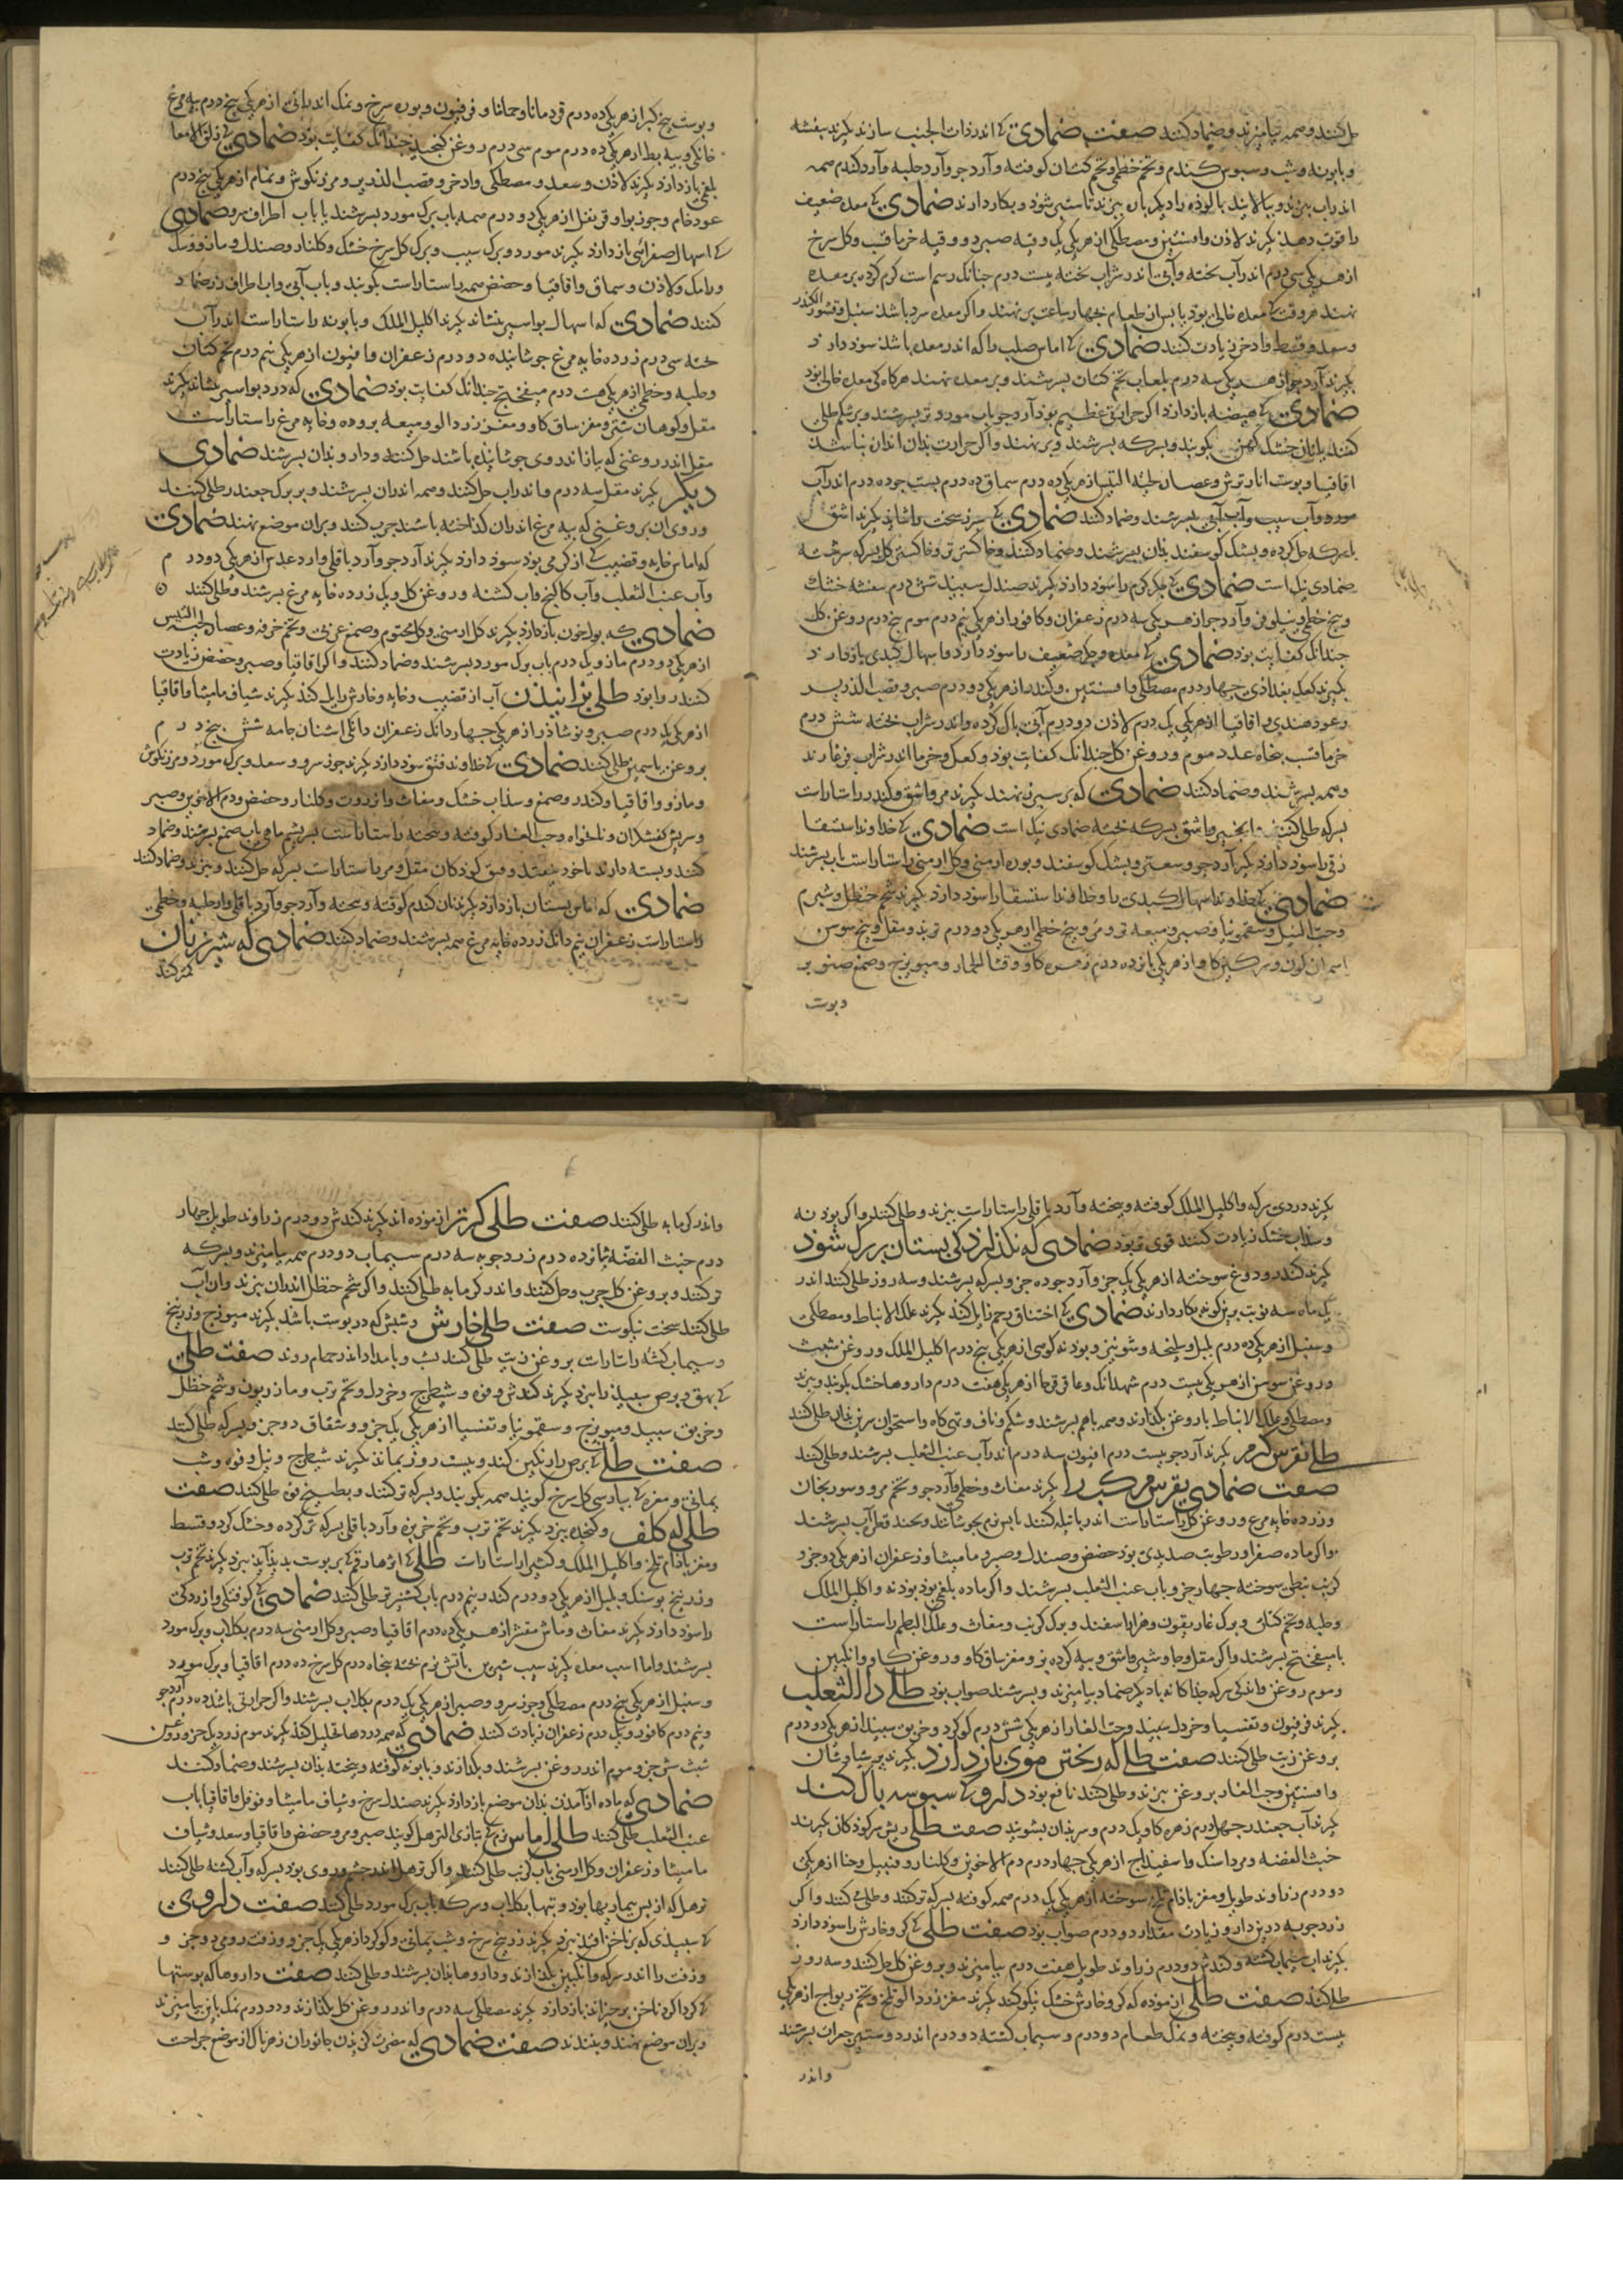 حل کنند و همه بیامیزند و ضماد کنند صفت ضمادی که اندر ذات الجنب سازند بکیرند بنفشه
و بابونه و شبت و سبوس کندم و تخم خطمی و تخم کتان کوفته و آرد جو و آرد حلبه و آرد کندم همه
اندر اب بپزند و بپالایند پالوده را دیکر باره بپزند تا سطبر شود و بکار دارند ضمادی که معده ضعیف
را قوت دهد بکیرند لاذن و افسنتین و مصطکی از هر یکی یک وقیه صبر دو وقیه خرما قسب و کل سرخ
از هر یکی سی درم اندر آب پخته و آبی اندر شراب پخته بیست درم چنانک رسم است کرم کرده بر معده
نهند هر وقت که معده خالی بود یا پس از طعام بچهار ساعت بر نهند و اکر معده سرد باشد سنبل و قشور الکندر
و سعد و قسط و اذخر زیادت کنند ضمادی که اماس صلب را که اندر معده باشد سود دارد
بکیرند آرد جو از هر یکی سه درم بلعاب تخم کتان بسرشند و بر معده نهند هر کاه که معده خالی بود
ضمادی که هیضه باز دارد اکر حرارتی عظیم بود آرد جو باب مورد تر بسرشند و بر شکم طلی
کنند یا نان خشک کهن بکوبند و بسرکه بسرشند و بر نهند و اکر حرارت بدان اندازه نباشد
اقاقیا و پوست انار ترش و عصاره لحیة التیس از هر یکی ده درم سماق ده درم پست جو ده درم اندر آب
مورد و آب سیب و آب آبی بسرشند و ضماد کنند ضمادی که سپرز سخت را شاید بکیرند اشق
بسرکه حل کرده و پشک کوسفند بدان بسرشند و ضماد کنند و خاکستر تر و خاکستر کل بسرکه سرشته
ضمادی نیک است ضمادی که جکر کرم را سود دارد بکیرند صندل سپید شش درم بنفشه خشک
و بیخ خطمی و نیلوفر و آرد جو از هر یکی سه درم زعفران و کافور از هر یکی نیم درم موم پنج درم روغن کل
چندانک کفایت بود ضمادی که معده و جکر ضعیف را سود دارد و اسهال کبدی باز دارد
بکیرند کعک بغدادی چهار درم مصطکی و افسنتین و کندر از هر یکی دو درم صبر و قصب الذریره
و عود هندی و اقاقیا از هر یکی یک درم لاذن دو درم آبی پاک کرده و اندر شراب پخته شش درم
خرما قسب پنجاه عدد موم و روغن کل چندانک کفایت بود و کعک و خرما اندر شراب فرغارند
و همه بسرشند و ضماد کنند ضمادی که بر سپرز نهند بکیرند مر و اشق و کندر راستاراست
بسرکه طلی کنند انجیر و اشق بسرکه پخته ضمادی نیک است ضمادی که خداوند استسقا
زقی را سود دارد بکیرند آرد جو و سعتر و پشک کوسفند و بوره ارمنی و کل ارمنی راستاراست باب بسرشند
ضمادی که خداوند اسهال کبدی را و خداوند استسقا را سود دارد بکیرند شحم حنظل و شبرم
و حب النیل و سقمونیا و صبر و میعه تر و مر و بیخ خطمی از هر یکی دو درم تربد و مقل و بیخ سوس
اسمان کون و سرکین کاو از هر یکی پانزده درم زهره کاو و قثا الحمار و میویزج و صمغ صنوبر
و پوست
و پوست بیخ کبر از هر یکی ده درم قردمانا و حماما و فرفیون و بوره سرخ و نمک اندرانی از هر یکی پنج درم پیه مرغ
خانکی و پیه بط از هر یکی ده درم موم سی درم روغن کنجد چندانک کفایت بود ضمادی که زلق الامعا
بلغمی باز دارد بکیرند لاذن و سعد و مصطکی و اذخر و قصب الذریره و مرزنکوش و نمام از هر یکی پنج درم
عود خام و جوز بوا و قرنفل از هر یکی دو درم همه باب برک مورد بسرشند یا باب اطراف سرو ضمادی
که اسهال صفرائی باز دارد بکیرند مورد و برک سیب و برک کل سرخ خشک و کلنار و صندل و مازو و سک
و رامک و لاذن و سماق و اقاقیا و حضض همه راستاراست بکوبند و باب آبی و اب اطراف رز ضماد
کنند ضمادی که اسهال بواسیر بنشاند بکیرند اکلیل الملک و بابونه راستاراست اندر آب
پخته سی درم زرده خایه مرغ جوشانیده دو درم زعفران و افیون از هر یکی نیم درم تخم کتان
و حلبه و خطمی از هر یکی هشت درم میفختج چندانک کفایت بود ضمادی که درد بواسیر بنشاند بکیرند
مقل و کوهان شتر و مغز ساق کاو و مغز زردالو و میعه بروده و خایه مرغ راستاراست
مقل اندر روغنی که پیاز اندر وی جوشانیده باشند حل کنند و دارو بدان بسرشند ضمادی
دیکر بکیرند مقل سه درم و اندر اب حل کنند و همه اندران بسرشند و بر برک چغندر طلی کنند
و روی ان بروغنی که پیه مرغ اندران کداخته باشند چرب کنند و بران موضع نهند ضمادی
که اماس خایه و قضیب که از کرمی بود سود دارد بکیرند آرد جو و آرد باقلی و آرد عدس از هر یکی دو درم
و آب عنب الثعلب و آب کاکنج و اب کشنه و روغن کل و یک زرده خایه مرغ بسرشند و طلی کنند
ضمادی که بول خون باز دارد بکیرند کل ارمنی و کل مختوم و صمغ عربی و تخم خرفه و عصاره لحیة التیس
از هر یکی دو درم مازو یک درم باب برک مورد بسرشند و ضماد کنند و اکر اقاقیا و صبر و حضض زیادت
کنند روا بود طلی بزانیدن آب از قضیب و خایه و خارش زایل کند بکیرند شیاف مامیثا و اقاقیا
از هر یکی یک درم صبر و نوشاذر از هر یکی چهار دانک زعفران دانکی اشنان جامه شش پنج درم
بروغن یاسمین طلی کنند ضمادی که خداوند فتق سود دارد بکیرند جوز سرو و سعد و برک مورد و مرزنکوش
و مازو و اقاقیا و کندر و صمغ و سذاب خشک و مغاث و انزروت و کلنار و حضض و دم الاخوین و صبر
و سریش کفشکران و نانخواه و حب الغار کوفته و بیخته راستاراست بسریشم ماهی باب صمغ بسرشند و ضماد
کنند و بسته دارند تا خود بیفتد و فتق کودکان مقل و مر راستاراست بسرکه حل کنند و بپزند و ضماد کنند
ضمادی که اماس پستان باز دارد بکیرند نان کندم کوفته و بیخته و آرد جو و آرد باقلی و آرد حلبه و خطمی
راستاراست زعفران نیم دانک زرده خایه مرغ همه بسرشند و ضماد کنند ضمادی که شیر زنان
کمتر کند
بکیرند دردی سرکه و اکلیل الملک کوفته و بیخته و آرد باقلی راستاراست بپزند و طلی کنند و اکر پودنه
و سذاب خشک زیادت کنند قوی تر بود ضمادی که نکذارد کی پستان بزرک شود
بکیرند کندر و دوغ سوخته از هر یکی یک جز و آرد جو ده جز و بسرکه بسرشند و سه روز طلی کنند اندر
یک ماه سه نوبت برین کونه بکار دارند ضمادی که اختناق رحم زایل کند بکیرند علک الانباط و مصطکی
و سنبل از هر یکی ده درم بلیل و سلیخه و شونیز و پودنه کوهی از هر یکی پنج درم اکلیل الملک و روغن شبت
و روغن سوسن از هر یکی بیست درم شهدانک و عاقرقرحا از هر یکی هفت درم داروها خشک بکوبند و بپزند
و مصطکی و علک الانباط با روغن بکدازند و همه باهم بسرشند و شکم و ناف و تهی کاه و استخوان سرین بدان طلی کنند
طلی نقرس کرم بکیرند آرد جو بیست درم افیون سه درم اندر آب عنب الثعلب بسرشند و طلی کنند
صفت ضمادی نقرس مرکب را بکیرند مغاث و خطمی و آرد جو و تخم مرو و سورنجان
و زرده خایه مرغ و روغن کل راستاراست اندر پاتیله کنند باتش نرم بجوشانند و بچند قطره آب بسرشند
و اکر ماده صفرا و رطوبت صدیدی بود حضض و صندل و صبر و مامیثا و زعفران از هر یکی دو جز و
کرنب نبطی سوخته چهار جز و باب عنب الثعلب بسرشند و اکر ماده بلغمی بود پودنه و اکلیل الملک
و حلبه و تخم کتان و برک غار و زیفون و هزاراسفند و برک کرنب و مغاث و علک البطم راستاراست
با میفختج بسرشند و اکر مقل و جاوشیر و اشق و پیه کرده بز و مغز ساق کاو و روغن کاو و انکبین
و موم روغن و اندکی سرکه جداکانه یا دیکر ضماد بیامیزند و بسرشند صواب بود طلی دا الثعلب
بکیرند فرفیون و تفسیا و خردل سپید و حب الغار از هر یکی شش درم کوکرد و خربق سپید از هر یکی دو درم
بروغن زیت طلی کنند صفت طلی که ریختن موی باز دارد بکیرند پرسیاوشان
و افسنتین و حب الغار بروغن بپزند و طلی کنند نافع بود داروی که سبوسه پاک کند
بکیرند آب چغندر چهار درم زهره کاو یک درم و سر بدان بشویند صفت طلی ریش سر کودکان بکیرند
خبث الفضه و مرداسنک و اسفیداج از هر یکی چهار درم دم الاخوین و کلنار و قنبیل و حنا از هر یکی
دو درم زراوند طویل و مغز بادام تلخ سوخته از هر یکی یک درم همه کوفته بسرکه تر کنند و طلی کنند و اکر
زردچوبه درین دارو زیادت مقدار دو درم صواب بود صفت طلی که کر و خارش را سود دارد
بکیرند سیماب کشته و کندش دو درم زراوند طویل هفت درم بیامیزند و بروغن کل حل کنند و سه روز
طلی کنند صفت طلی ازموده که کر و خارش خشک نیکو کند بکیرند مغز زردالو تلخ و تخم ریواج از هر یکی
بیست درم کوفته و بیخته و نمک طعام دو درم و سیماب کشته دو درم اندر دوستیر جغرات بسرشند
واندر
و اندر کرمابه طلی کنند صفت طلی کر تر ازموده اند بکیرند کندش دو درم زراوند طویل چهار
درم خبث الفضه پانزده درم زردچوبه سه درم سیماب دو درم همه بیامیزند و بسرکه
تر کنند و بروغن کل چرب و حل کنند و اندر کرمابه طلی کنند و اکر شحم حنظل اندران بپزند و ان آب
طلی کنند سخت نیکوست صفت طلی خارش و شپش که در پوست باشد بکیرند میویزج و زرنیخ
و سیماب کشته راستاراست بروغن زیت طلی کنند بشب و بامداد اندر حمام روند صفت طلی
که بهق و برص سپید را ببرد بکیرند کندش و فوه و شیطرج و خردل و تخم ترب و مازریون و شحم حنظل
و خربق سپید و میویزج و سقمونیا و تفسیا از هر یکی یک جز و شقاق دو جز و بسرکه طلی کنند
صفت طلی که برص را رنکین کند و بیست روز بماند بکیرند شیطرج و نیل و فوه و شب
یمانی و مغره که بپارسی کل سرخ کویند همه بکوبند و بسرکه تر کنند و بطبیخ فوه طلی کنند صفت
طلی که کلف و کنجده ببرد بکیرند تخم ترب و تخم خربزه و آرد باقلی بسرکه تر کرده و خشک کرده و قسط
و مغز بادام تلخ و اکلیل الملک و کثیرا راستاراست طلی که اثرها رقم که بر پوست پدید آید ببرد بکیرند تخم ترب
و زرنیخ بوسنک و بلبل از هر یکی دو درم کندر نیم درم باب کشنیز تر طلی کنند ضمادی که کوفتکی و ازردکی
را سود دارد بکیرند مغاث و ماش مقشر از هر یکی ده درم اقاقیا و صبر و کل ارمنی سه درم بکلاب و برک مورد
بسرشند و اما اسیب معده بکیرند سیب شیرین باتش نرم پخته پنجاه درم کل سرخ ده درم اقاقیا و برک مورد
و سنبل از هر یکی پنج درم مصطکی و جوز سرو و صبر از هر یکی یک درم بکلاب بسرشند و اکر حرارتی باشد ده درم آرد جو
و نیم درم کافور و یک درم زعفران زیادت کنند ضمادی که همه دردها تحلیل کند بکیرند موم زرد یک جز و روغن
شبت شش جز و موم اندر روغن بسرشند و بکدازند و بابونه کوفته و بیخته بدان بسرشند و ضماد کنند
ضمادی که ماده از آمدن بدان موضع باز دارد بکیرند صندل سرخ و شیاف مامیثا و فوفل و اقاقیا باب
عنب الثعلب طلی کنند طلی اماس نرم که بتازی الترهل کویند صبر و مر و حضض و اقاقیا و سعد و شیاف
مامیثا و زعفران و کل ارمنی باب کرنب طلی کنند و اکر ترهل اندر چشم و روی بود بسرکه و آب کشنه طلی کنند
ترهل که از پس بیماریها بود و تنها بکلاب و سرکه یا باب برک مورد طلی کنند صفت داروی
که سپیدی که بر ناخن افتد ببرد بکیرند زرنیخ سرخ و شب یمانی و کوکرد از هر یکی یک جز و زفت رومی دو جز و
و زفت را اندر سرکه و انکبین بکدازند و داروها بدان بسرشند و طلی کنند صفت داروها که پوستها
که کرداکرد ناخن برخیزد باز دارد بکیرند مصطکی سه درم و اندر روغن کل بکدازند و دو درم نمک باز بیامیزند
و بران موضع نهند و ببندند صفت ضمادی که مضرت کزیدن جانوران زهرناک از موضع جراحت